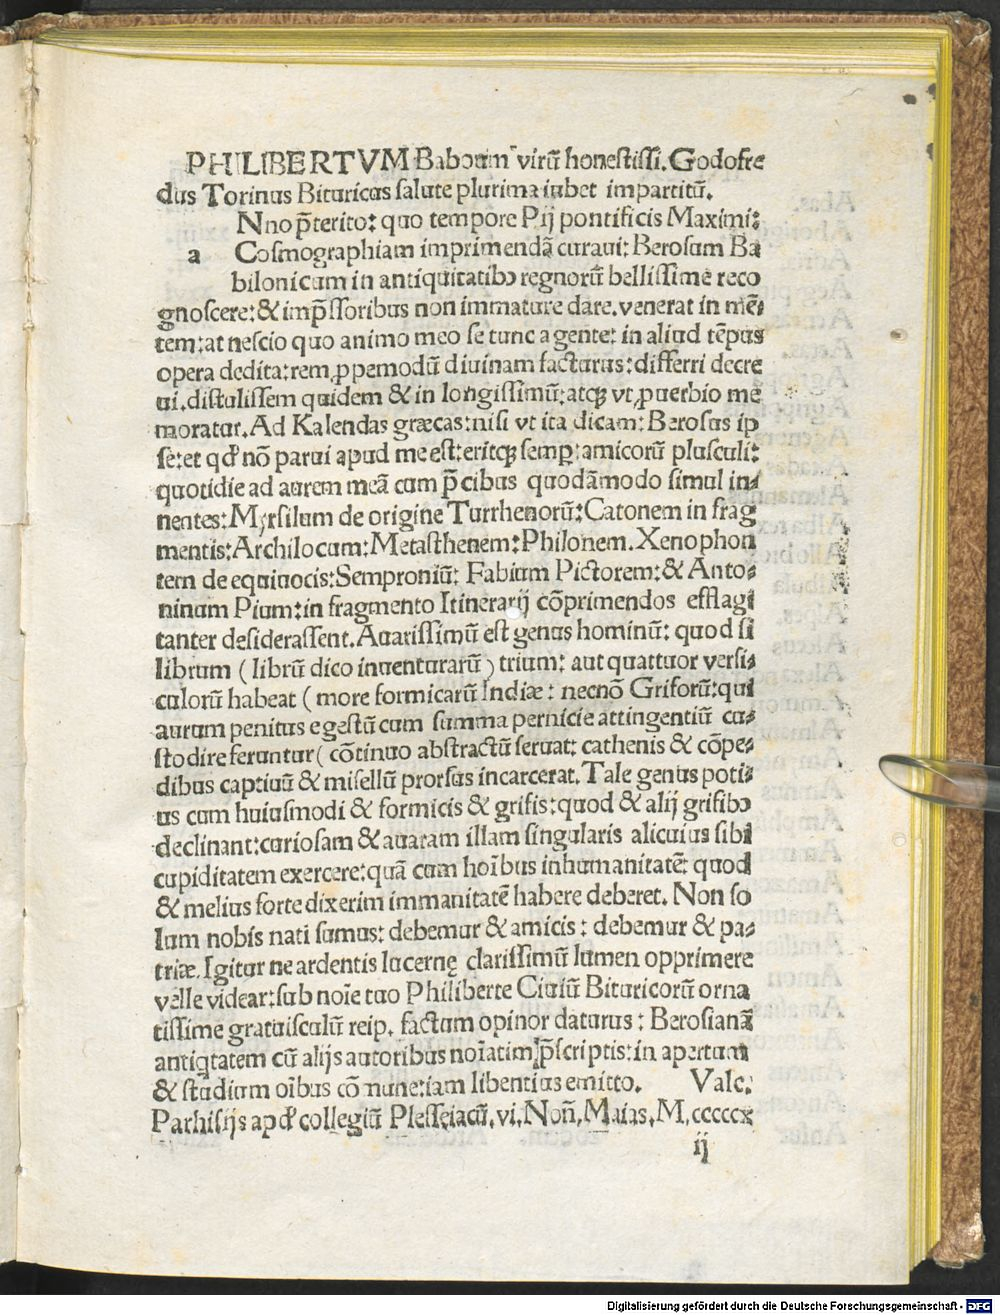 PHILIBERTVM Baboum virū honestissi. Godofre
dus Torinus Bituricus salute plurima iubet impartitū.
Nno p̄terito: quo tempore Pij pontificis Maximi:
a Cosmographiam imprimendā curaui: Berosum Ba
bilonicum in antiquitatibꝰ regnorū bellissime reco
gnoscere: & imp̄ssoribus non immature dare. venerat in mē⸗
tem: at nescio quo animo meo se tunc agente: in aliud tēpus
opera dedita: rem, ꝓpemodū diuinam facturus: differri decre
ui. distulissem quidem & in longissimū: atqꝫ vt ꝓuerbio me
moratur. Ad Kalendas græcas: nisi vt ita dicam: Berosus ip
se: et qđ nō parui apud me est: eritqꝫ semꝑ: amicorū plusculi:
quotidie ad aurem meā cum p̄cibus quodāmodo simul in⸗
nentes: Myrsilum de origine Turrhenorū: Catonem in frag
mentis: Archilocum: Metasthenem: Philonem. Xenophon
tem de equiuocis: Semproniū: Fabium Pictorem: & Anto⸗
ninum Pium: in fragmento Itinerarij cōprimendos efflagi
tanter desiderassent. Auarissimū est genus hominū: quod si
librum ( librū dico inuenturarū ) trium: aut quattuor versi⸗
culorū habeat ( more formicarū Indiæ: necnō Griforū: qui
aurum penitus egestū cum summa pernicie attingentiū cu⸗
stodire feruntur ( cōtinuo abstractū seruat: cathenis & cōpe⸗
dibus captiuū & misellū prorsus incarcerat. Tale genus poti⸗
us cum huiusmodi & formicis & grifis: quod & alij grifibꝰ
declinant: curiosam & auaram illam singularis alicuius sibi
cupiditatem exercere: quā cum hoībus inhumanitatē: quod
& melius forte dixerim immanitatē habere deberet. Non so
lum nobis nati sumus: debemur & amicis: debemur & pa⸗
triæ. Igitur ne ardentis lucernę clarissimū lumen opprimere
velle videar: sub noīe tuo Philiberte Ciuiū Bituricorū orna
tissime gratuisculū reip. factum opinor daturus: Berosianā
antiqtatem cū alijs autoribus noīatim p̄scriptis: in apertum
& studium oībus cō nune: iam libentius emitto. Vale.
Parhisijs apđ collegiū Plesseiacū. vi. Noñ. Maias. M. cccccx
ij
Digitalisierung gefördert durch die Deutsche Forschungsgemeinschaft - DFG